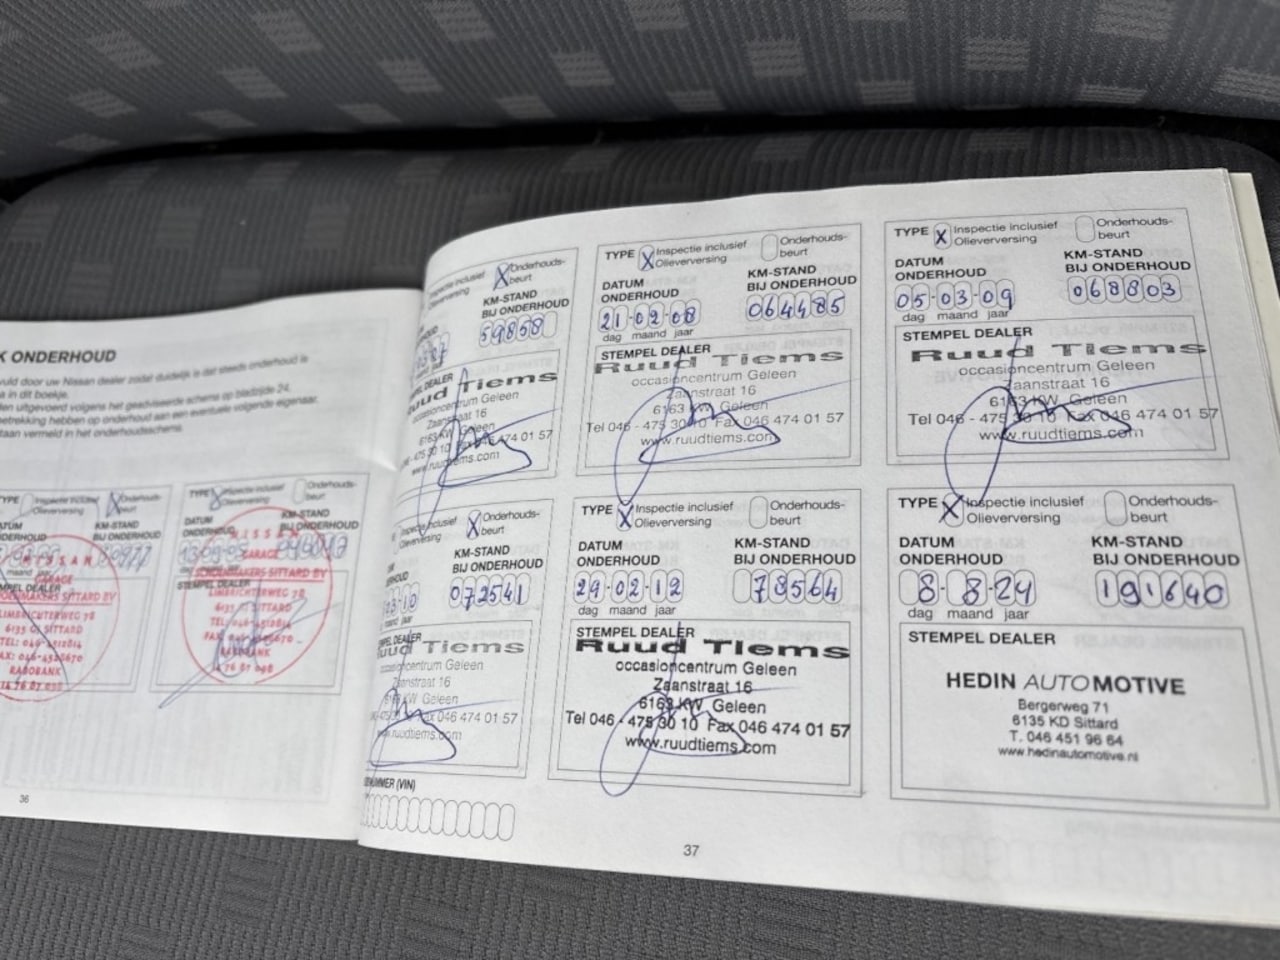 K ONDERHOUD
uld door uw Nissan dealer zodat duidelijk is dat steeds onderhoud is
a in dit boekje.
en uitgevoerd volgens het geadviseerde schema op bladzijde 24,
betrekking hebben op onderhoud aan een eventuele volgende eigenaar,
taan vermeld in het onderhoudsschema.
TYPE Inspectie inclusief X Onderhouds-
beurt
KM-STAND
BIJ ONDERHOUD
NISSAN
GARAGE
SITTARD BV
LIMBRICHTERWEG 78
6135 GJ SITTARD
TEL: 046-4512814
FAX: 046-4528670
RABOBANK
TYPE X Inspectie inclusief Onderhouds-
beurt
DATUM
ONDERHOUD
KM-STAND
BIJ ONDERHOUD
STEMPEL DEALER
NISSAN
GARAGE
SCHOENMAKERS SITTARD BV
LIMBRICHTERWEG 78
SITTARD
RABOBANK
36
Inspectie inclusief X Onderhouds-
Olieverversing beurt
KM-STAND
BIJ ONDERHOUD
59858
DEALER
Ruud Tiems
occasioncentrum Geleen
Zaanstraat 16
6163 KW Geleen
046 474 01 57
www.ruudtiems.com
TYPE X Inspectie inclusief Onderhouds-
Olieverversing beurt
DATUM KM-STAND
ONDERHOUD BIJ ONDERHOUD
21-02-08 064485
dag maand jaar
STEMPEL DEALER
Ruud Tiems
occasioncentrum Geleen
Zaanstraat 16
6163 KW Geleen
Tel 046 - 475 30 10 Fax 046 474 01 57
www.ruudtiems.com
TYPE X Inspectie inclusief Onderhouds-
Olieverversing beurt
DATUM KM-STAND
ONDERHOUD BIJ ONDERHOUD
05-03-09 068803
dag maand jaar
STEMPEL DEALER
Ruud Tiems
occasioncentrum Geleen
Zaanstraat 16
6163 KW Geleen
Tel 046 - 475 30 10 Fax 046 474 01 57
www.ruudtiems.com
Inspectie inclusief X Onderhouds-
Olieverversing beurt
KM-STAND
BIJ ONDERHOUD
072541
maand jaar
STEMPEL DEALER
Ruud Tiems
occasioncentrum Geleen
Zaanstraat 16
6163 KW Geleen
Fax 046 474 01 57
www.ruudtiems.com
NUMMER (VIN)
TYPE X Inspectie inclusief Onderhouds-
Olieverversing beurt
DATUM KM-STAND
ONDERHOUD BIJ ONDERHOUD
29-02-12 78564
dag maand jaar
STEMPEL DEALER
Ruud Tiems
occasioncentrum Geleen
Zaanstraat 16
6163 KW Geleen
Tel 046 - 475 30 10 Fax 046 474 01 57
www.ruudtiems.com
TYPE X Inspectie inclusief Onderhouds-
Olieverversing beurt
DATUM KM-STAND
ONDERHOUD BIJ ONDERHOUD
8-8-24 191640
dag maand jaar
STEMPEL DEALER
HEDIN AUTOMOTIVE
Bergerweg 71
6135 KD Sittard
T. 046 451 96 64
www.hedinautomotive.nl
37